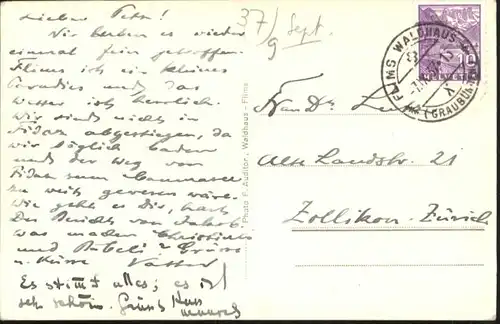 Lieber Peter!
Wir haben es wieder
einmal fein getroffen.
Flims ist ein kleines
Paradies und das
Wetter ist herrlich.
Wir sind nicht in
Fidaz abgestiegen, da
wir täglich baden
und der Weg von
Fidaz zum Caumasee
zu weit gewesen wäre.
Wie geht es Dir,
Den Bericht von
was machen
und
u. Küsse Vater
Es stimmt alles; es ist
sehr schön. Gruss Kuss
37/9 Sept.
Photo F. Auditor, Waldhaus - Flims
FLIMS WALDHAUS
(GRAUBÜNDEN)
HELVETIA
10
Frau Dr.
Alte Landstr. 21
Zollikon-Zürich